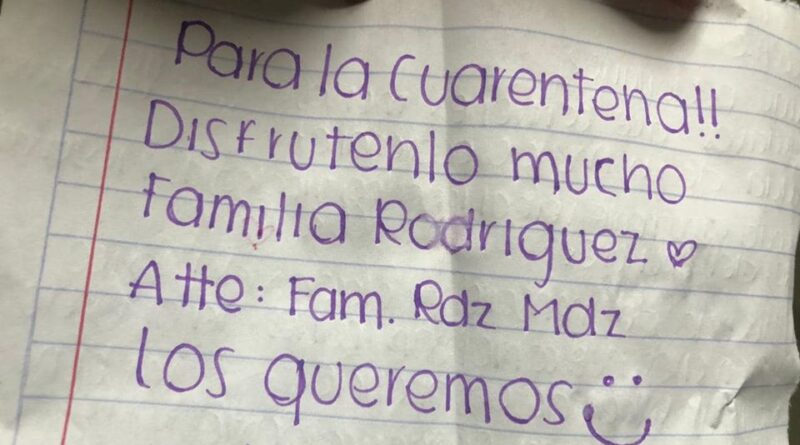 Para la Cuarentena!!
Disfrutenlo mucho
familia Rodriguez ♡
Atte: Fam. Rdz Mdz
los queremos :)